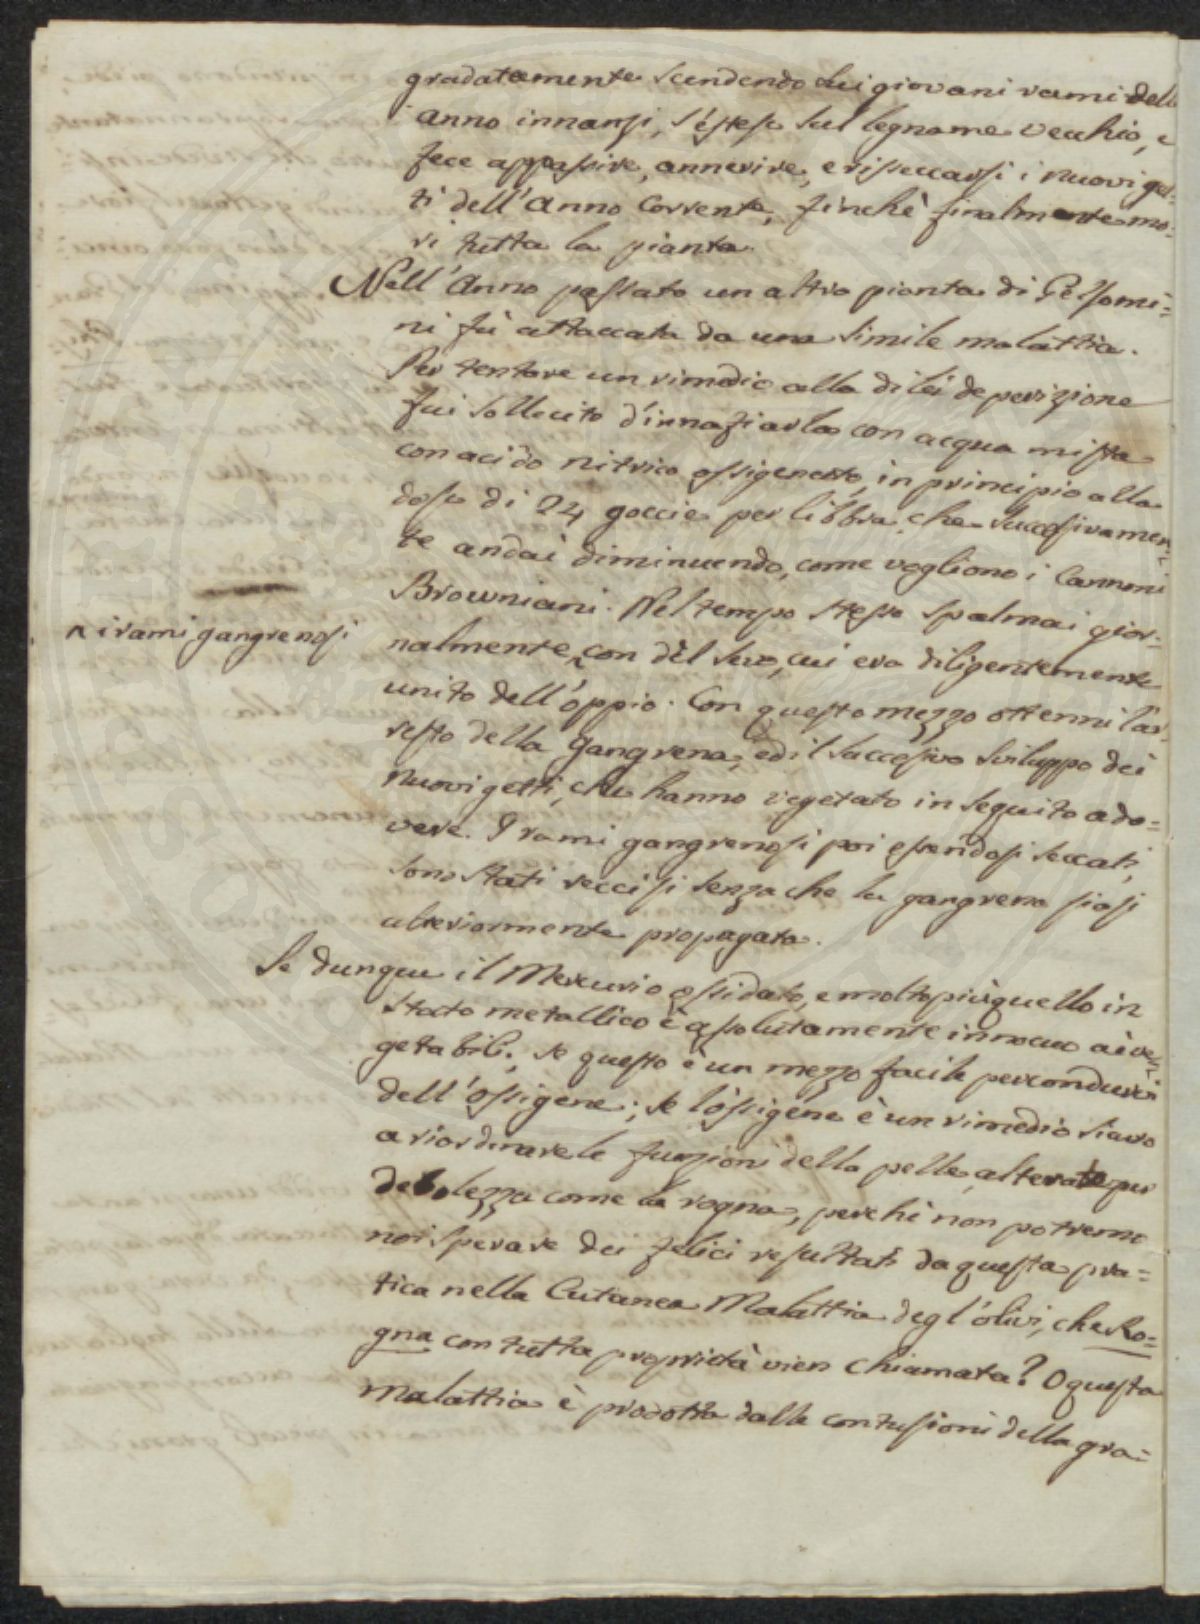 gradatamente scendendo sui giovani rami dell
anno innanzi, s'éstese sul legname vecchio, e
fece appassire, annerire, e risseccarsi i nuovi get=
ti dell'Anno corrente, finchè finalmente mo=
ri tutta la pianta.
Nell'Anno passato un altra pianta di Gelsomi=
ni fù attaccata da una simile malattia.
Per tentare un rimedio alla di lei deperizione
fui sollecito d'innafiarla con acqua mista
con acido nitrico ossigenato, in principio alla
dose di 24 goccie per libbra, che successivamen=
te andai diminuendo, come vogliono i Cannoni
Browniani. Nel tempo stesso spalmai gior=
^ i rami gangrenosi
nalmente ^ con del sevo, cui era diligentemente
unito dell'óppio. Con questo mezzo ottenni l'ar=
resto della Gangrena, ed il successivo sviluppo dei
nuovi getti, che hanno vegetato in seguito a do=
vere. I rami gangrenosi poi essendosi seccati,
sono stati reccisi senza che la gangrena siasi
ulteriormente propagata.
Se dunque il Mercurio ossidato, e molto più quello in
stato metallico è assolutamente innocuo ai ve=
getabili; se questo è un mezzo facile per condurvi
dell'ossigene; se l'óssigéne è un rimedio sicuro
a riordinare le funzioni della pelle alterate per
debolezza come la rogna, perchè non potremo
noi sperare dei felici resultati da questa pra=
tica nella Cutanea Malattia degl'ólivi, che Ro=
gna con tutta proprietà vien chiamata? O questa
malattia è prodotta dalle contusioni della gra=